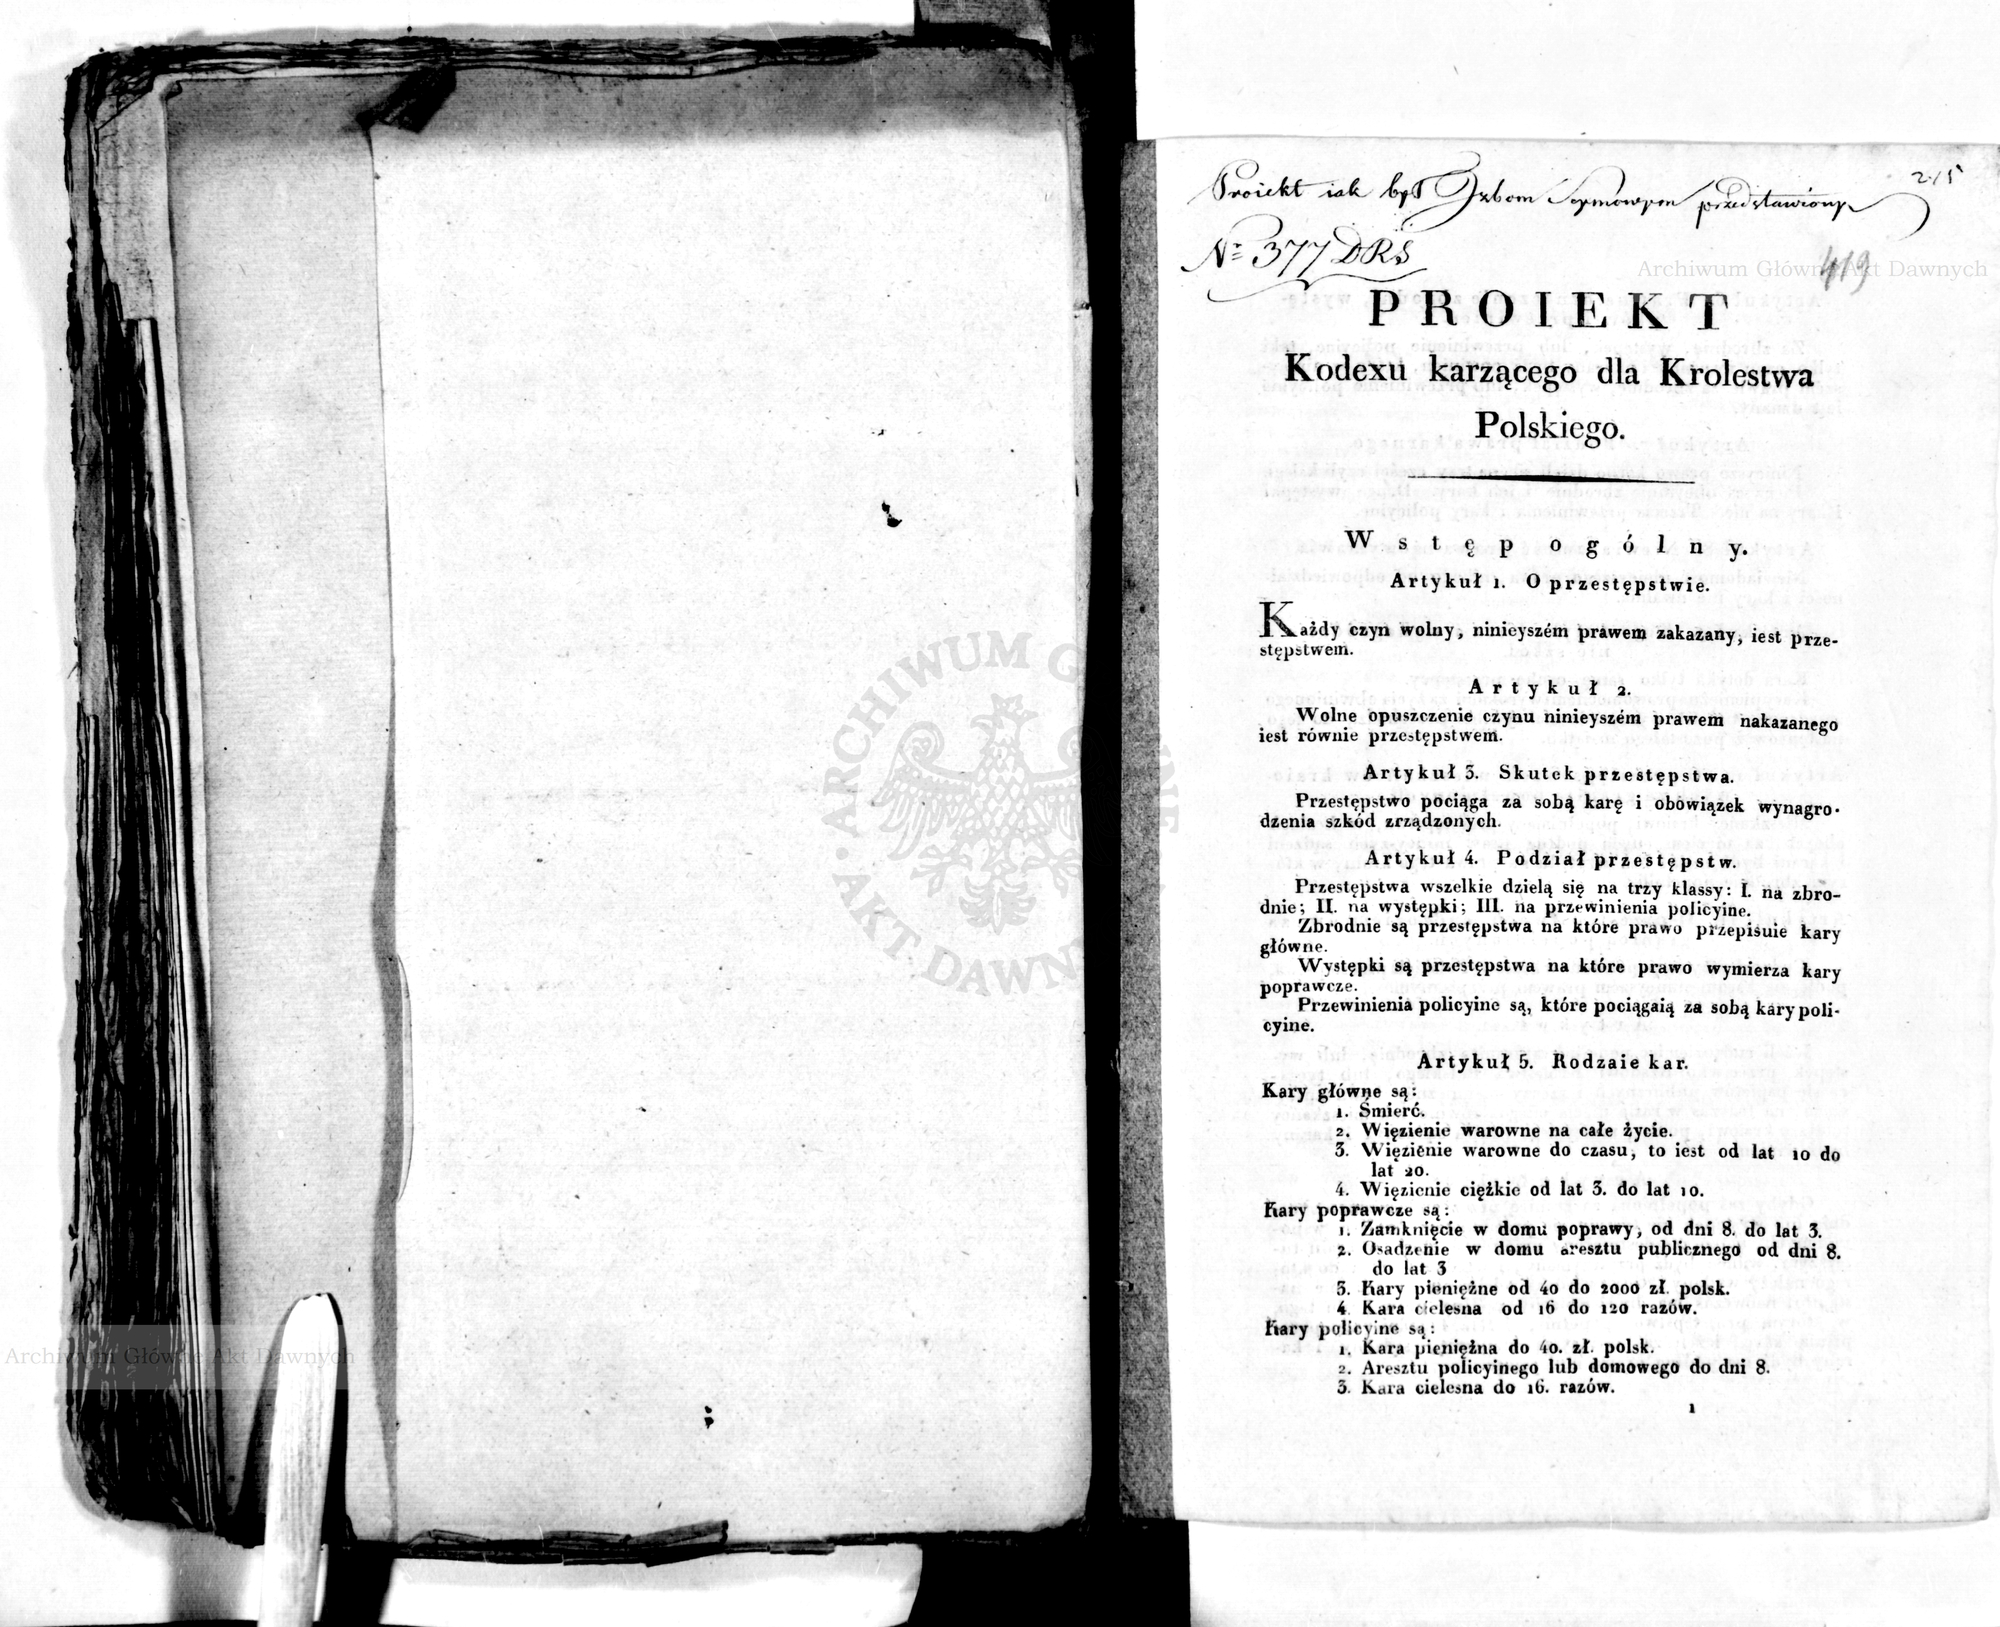 Proiekt iak był Izbom Seymowym przedstawiony
215
Nr 377 DRS
419
Archiwum Główne Akt Dawnych
PROIEKT
Kodexu karzącego dla Krolestwa
Polskiego.
Wstęp ogólny.
Artykuł 1. O przestępstwie.
Każdy czyn wolny, ninieyszém prawem zakazany, iest prze-
stępstwem.
Artykuł 2.
Wolne opuszczenie czynu ninieyszém prawem nakazanego
iest równie przestępstwem.
Artykuł 3. Skutek przestępstwa.
Przestępstwo pociąga za sobą karę i obowiązek wynagro-
dzenia szkód zrządzonych.
Artykuł 4. Podział przestępstw.
Przestępstwa wszelkie dzielą się na trzy klassy: I. na zbro-
dnie; II. na występki; III. na przewinienia policyine.
Zbrodnie są przestępstwa na które prawo przepisuie kary
główne.
Występki są przestępstwa na które prawo wymierza kary
poprawcze.
Przewinienia policyine są, które pociągaią za sobą kary poli-
cyine.
Artykuł 5. Rodzaie kar.
Kary główne są:
1. Śmierć.
2. Więzienie warowne na całe życie.
3. Więzienie warowne do czasu, to iest od lat 10 do
lat 20.
4. Więzienie ciężkie od lat 3. do lat 10.
Kary poprawcze są:
1. Zamknięcie w domu poprawy, od dni 8. do lat 3.
2. Osadzenie w domu aresztu publicznego od dni 8.
do lat 3
3. Kary pieniężne od 40 do 2000 zł. polsk.
4. Kara cielesna od 16 do 120 razów.
Kary policyine są:
1. Kara pieniężna do 40. zł. polsk.
2. Aresztu policyinego lub domowego do dni 8.
3. Kara cielesna do 16. razów.
1
Archiwum Główne Akt Dawnych